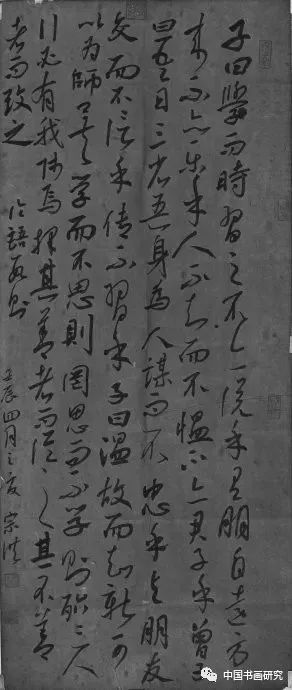 子曰學而時習之不亦說乎有朋自遠方
來不亦樂乎人不知而不慍不亦君子乎曾子
曰吾日三省吾身為人謀而不忠乎與朋友
交而不信乎傳不習乎子曰溫故而知新可
以為師矣學而不思則罔思而不學則殆三人
行必有我師焉擇其善者而從之其不善
者而改之 論語數則 壬辰四月之夜 宗
中国书画研究